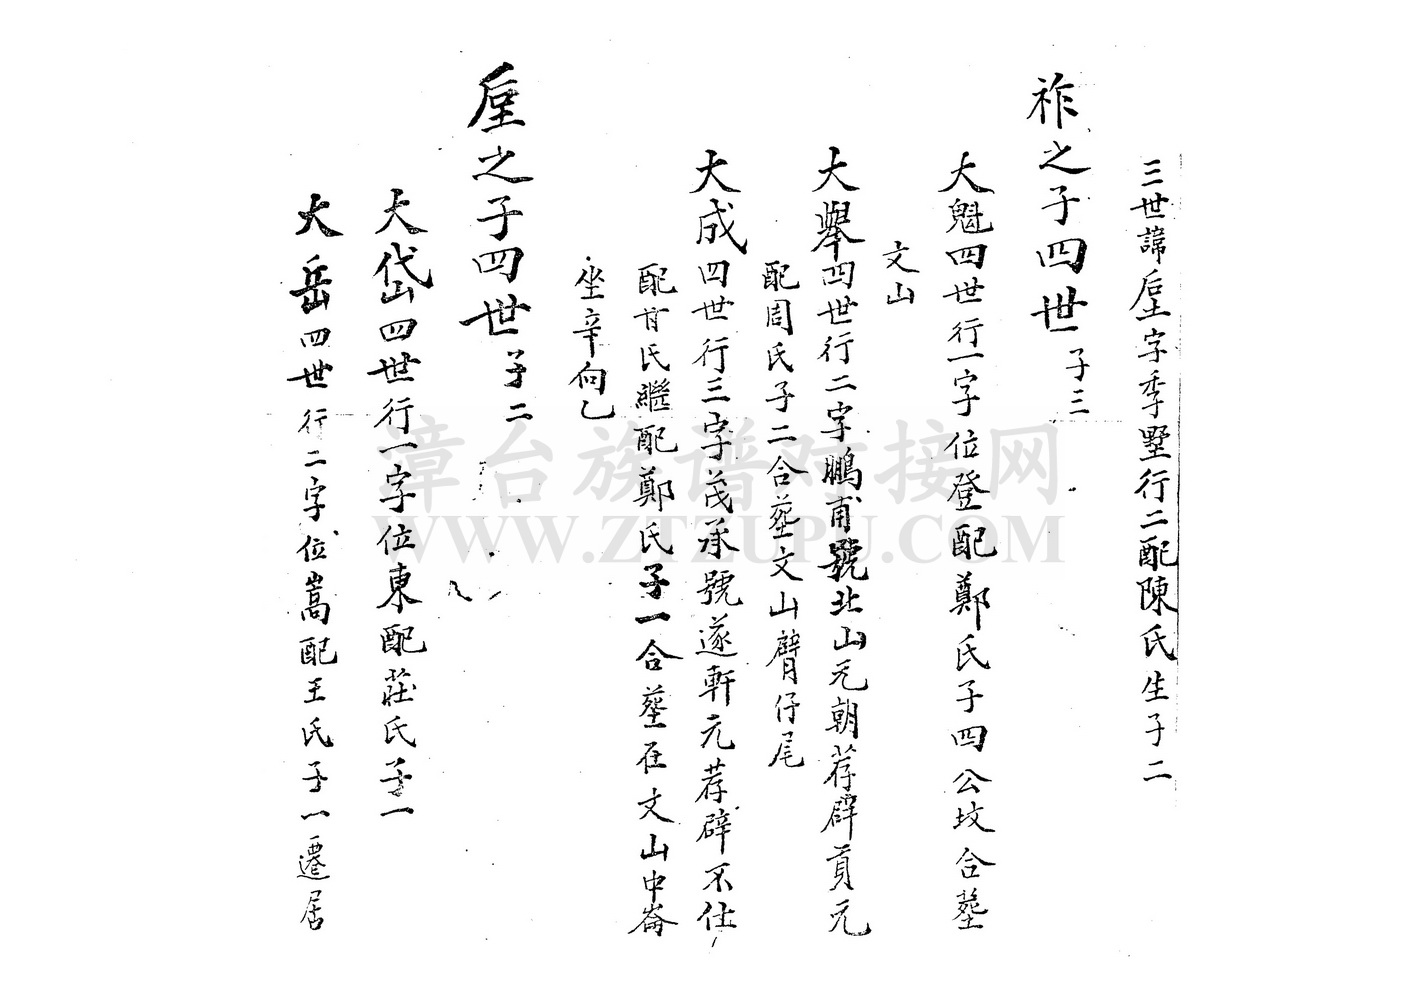 三世諱垕字季墅行二配陳氏生子二
祚之子四世子三
大魁四世行一字位登配鄭氏子四公坟合塟
文山
大舉四世行二字鵬甫號北山元朝荐辟貢元
配周氏子二合塟文山臂仔尾
大成四世行三字茂承號遂軒元荐辟不仕
配 氏繼配鄭氏子一合塟在文山中崙
坐辛向乙
垕之子四世子二
大岱四世行一字位東配莊氏子一
大岳四世行二字位嵩配王氏子一遷居
漳台族谱对接网
WWW.ZTZUPU.COM